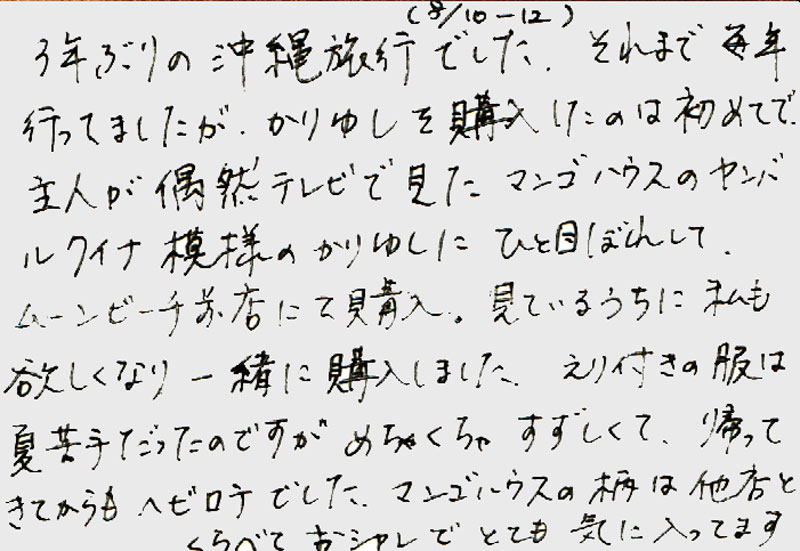 (8/10-12)
3年ぶりの沖縄旅行でした。それまで毎年
行ってましたが、かりゆしを購入したのは初めてで、
主人が偶然テレビで見たマンゴハウスのヤンバ
ルクイナ模様のかりゆしにひと目ぼれして、
ムーンビーチ前店にて購入。見ているうちに私も
欲しくなり一緒に購入しました。えり付きの服は
夏苦手だったのですがめちゃくちゃすずしくて、帰って
きてからもヘビロテでした。マンゴハウスの柄は他店と
くらべておシャレでとても気に入ってます